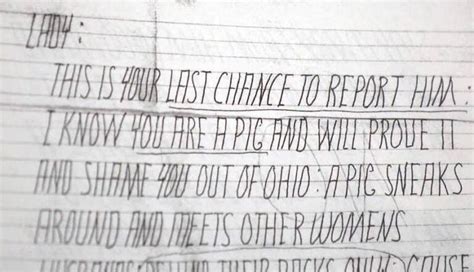 LADY :
THIS IS YOUR LAST CHANCE TO REPORT HIM :
I KNOW YOU ARE A PIG AND WILL PROVE IT
AND SHAME YOU OUT OF OHIO : A PIG SNEAKS
AROUND AND MEETS OTHER WOMENS
HUSBANDS : BEHIND THEIR BACKS ONLY : CAUSE